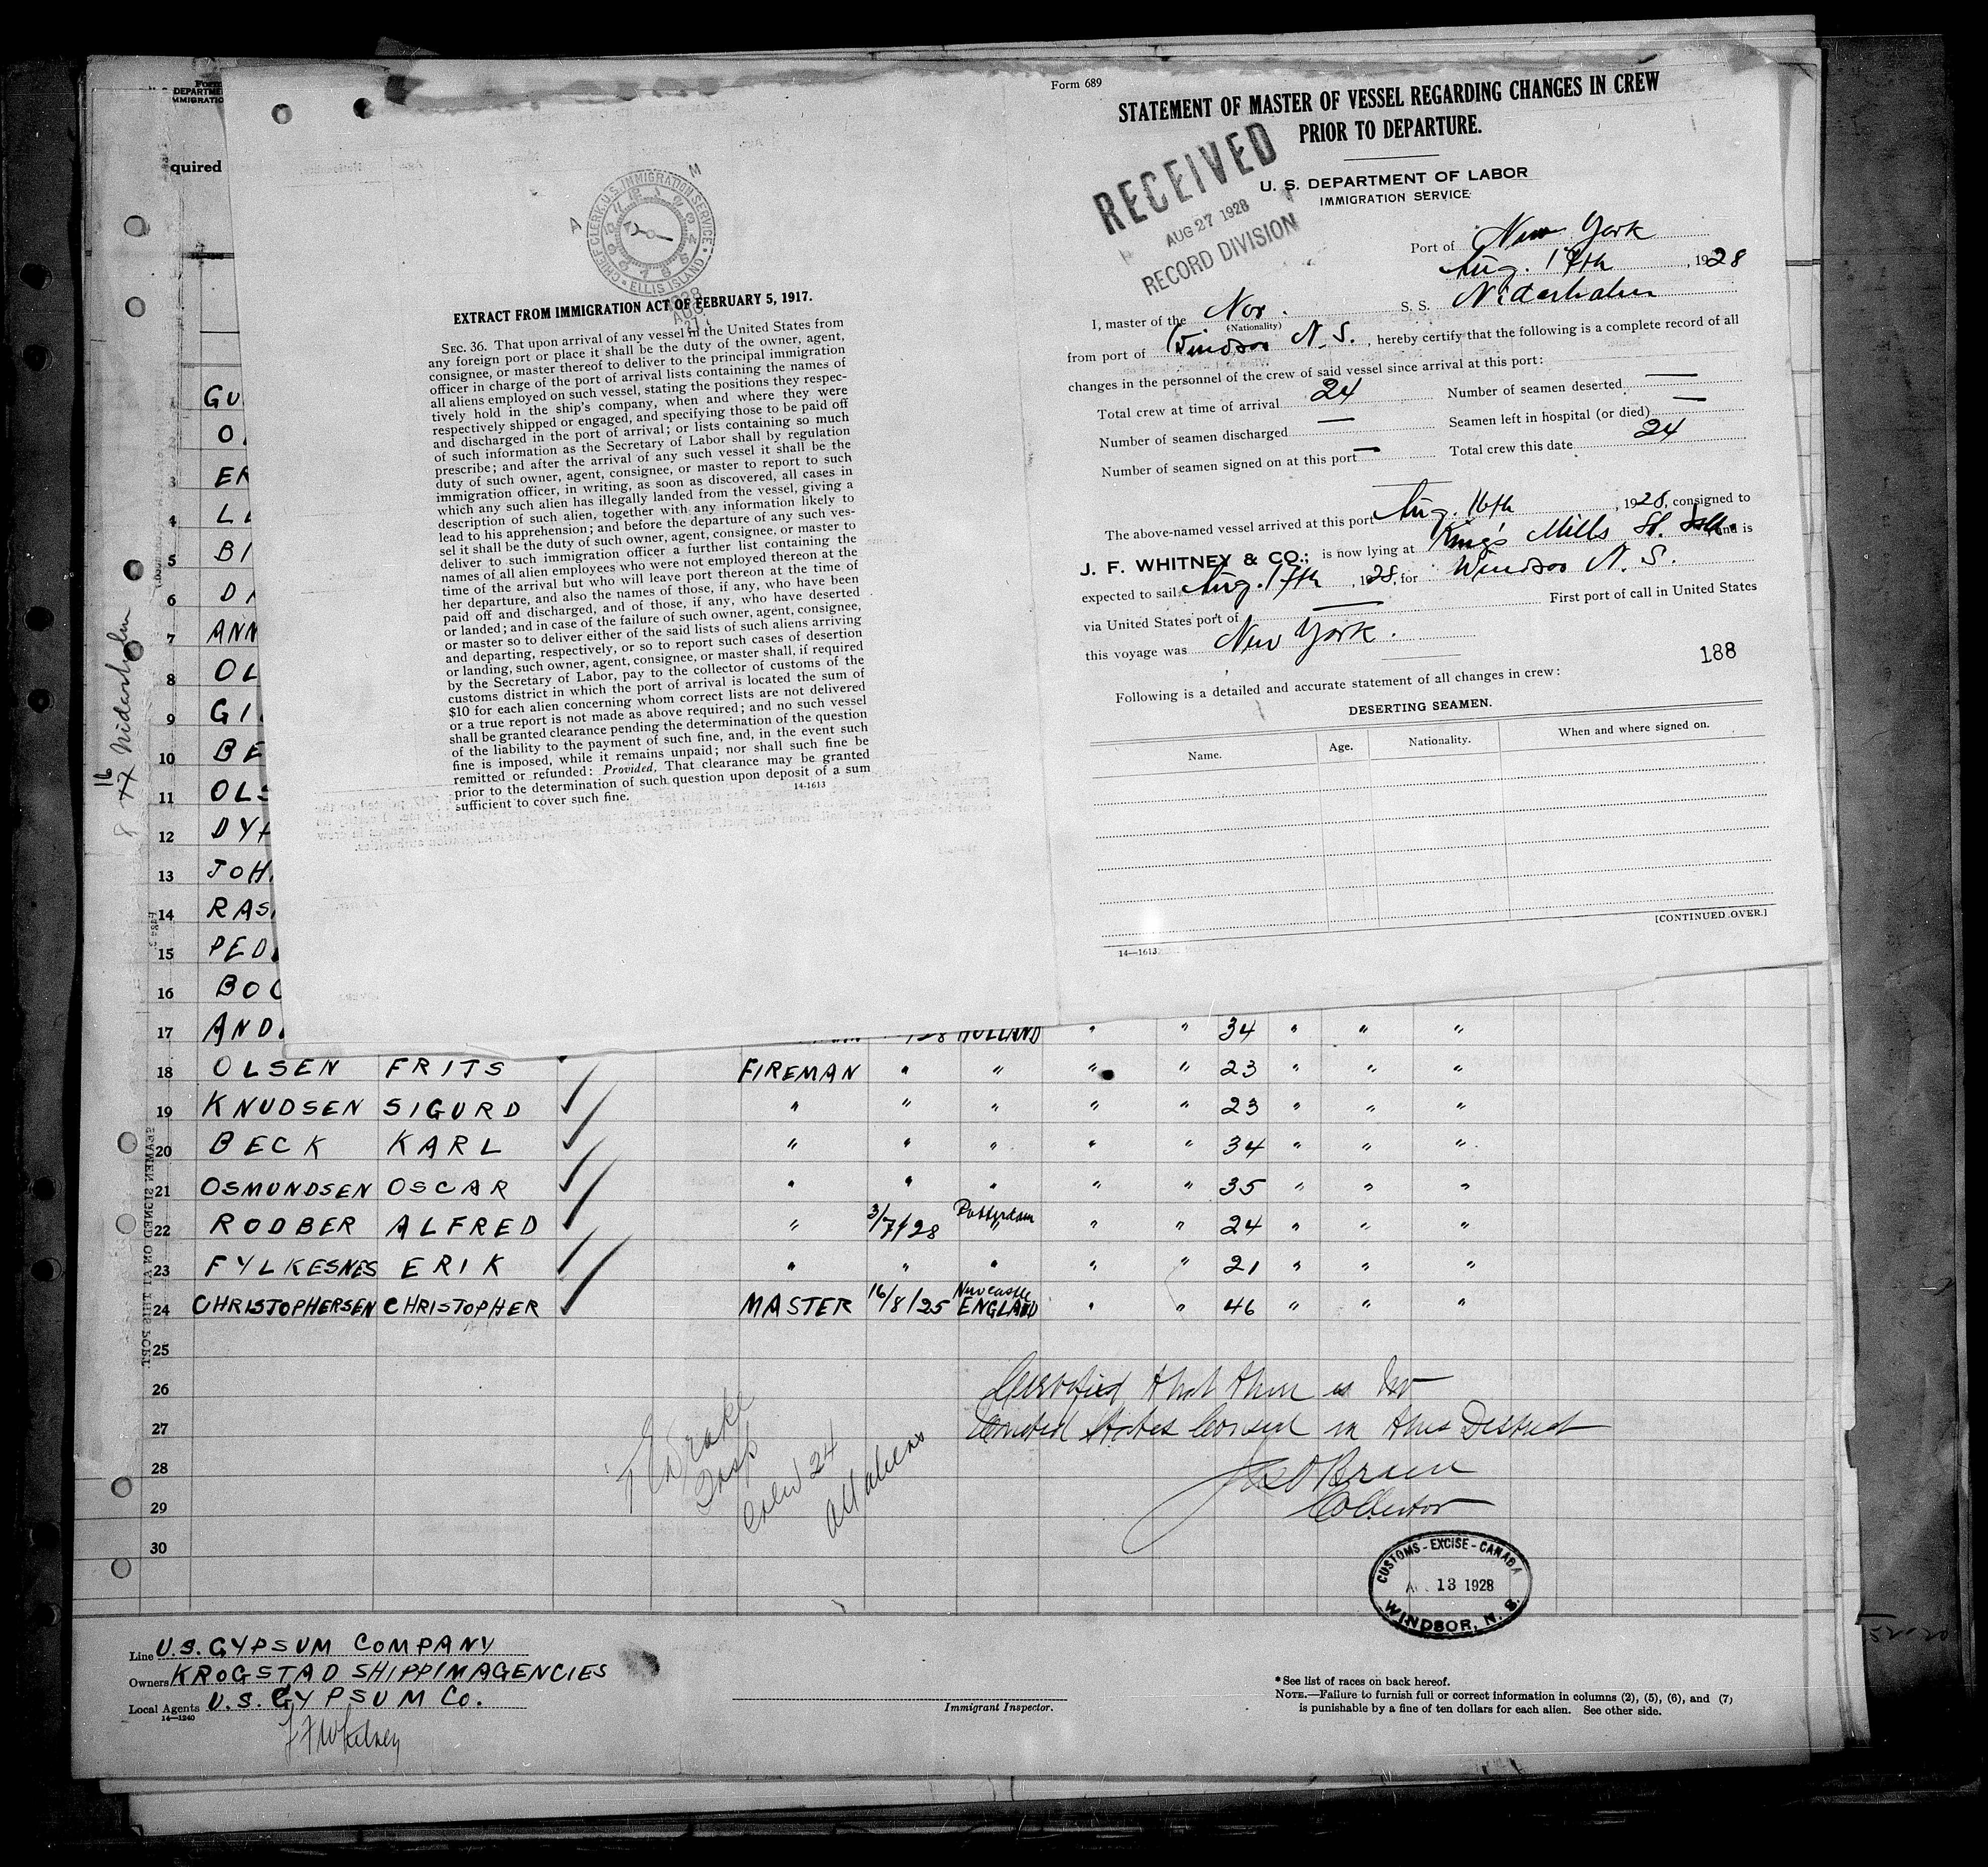 Form 689
STATEMENT OF MASTER OF VESSEL REGARDING CHANGES IN CREW
PRIOR TO DEPARTURE.
U. S. DEPARTMENT OF LABOR
IMMIGRATION SERVICE
RECEIVED
AUG 27 1928
RECORD DIVISION
Port of New York
Aug. 17th, 1928
I, master of the Nor. S. S. Nidarholm
(Nationality)
from port of Windsor N. S., hereby certify that the following is a complete record of all
changes in the personnel of the crew of said vessel since arrival at this port:
Total crew at time of arrival 24 Number of seamen deserted —
Number of seamen discharged — Seamen left in hospital (or died) —
Number of seamen signed on at this port — Total crew this date 24
The above-named vessel arrived at this port Aug. 16th, 1928, consigned to
J. F. WHITNEY & CO.; is now lying at King's Mills St. and is
expected to sail Aug. 17th, 1928, for Windsor N. S.
via United States port of — First port of call in United States
this voyage was New York.
188
Following is a detailed and accurate statement of all changes in crew:
DESERTING SEAMEN.
Name. Age. Nationality. When and where signed on.
[CONTINUED OVER.]
14—1613
CHIEF CLERK U. S. IMMIGRATION SERVICE
ELLIS ISLAND
EXTRACT FROM IMMIGRATION ACT OF FEBRUARY 5, 1917.
SEC. 36. That upon arrival of any vessel in the United States from
any foreign port or place it shall be the duty of the owner, agent,
consignee, or master thereof to deliver to the principal immigration
officer in charge of the port of arrival lists containing the names of
all aliens employed on such vessel, stating the positions they respec-
tively hold in the ship's company, when and where they were
respectively shipped or engaged, and specifying those to be paid off
and discharged in the port of arrival; or lists containing so much
of such information as the Secretary of Labor shall by regulation
prescribe; and after the arrival of any such vessel it shall be the
duty of such owner, agent, consignee, or master to report to such
immigration officer, in writing, as soon as discovered, all cases in
which any such alien has illegally landed from the vessel, giving a
description of such alien, together with any information likely to
lead to his apprehension; and before the departure of any such ves-
sel it shall be the duty of such owner, agent, consignee, or master to
deliver to such immigration officer a further list containing the
names of all alien employees who were not employed thereon at the
time of the arrival but who will leave port thereon at the time of
her departure, and also the names of those, if any, who have been
paid off and discharged, and of those, if any, who have deserted
or landed; and in case of the failure of such owner, agent, consignee,
or master so to deliver either of the said lists of such aliens arriving
and departing, respectively, or so to report such cases of desertion
or landing, such owner, agent, consignee, or master shall, if required
by the Secretary of Labor, pay to the collector of customs of the
customs district in which the port of arrival is located the sum of
$10 for each alien concerning whom correct lists are not delivered
or a true report is not made as above required; and no such vessel
shall be granted clearance pending the determination of the question
of the liability to the payment of such fine, and, in the event such
fine is imposed, while it remains unpaid; nor shall such fine be
remitted or refunded: Provided, That clearance may be granted
prior to the determination of such question upon deposit of a sum
sufficient to cover such fine.
14-1613
quired
16 Nidarholm
1 GU
2 O
3 ER
4 L
5 BI
6 D
7 ANN
8 OL
9 GI
10 BE
11 OLS
12 DY
13 JOH
14 RAS
15 PED
16 BO
17 AND HOLLAND " " 34 " " "
18 OLSEN FRITS FIREMAN " " " " 23 " " "
19 KNUDSEN SIGURD " " " " " 23 " " "
20 BECK KARL " " " " " 34 " " "
21 OSMUNDSEN OSCAR " " " " " 35 " " "
22 RODBER ALFRED " 3/7/28 Rotterdam " " 24 " " "
23 FYLKESNES ERIK " " " " " 21 " " "
24 CHRISTOPHERSEN CHRISTOPHER MASTER 16/8/25 Newcastle ENGLAND " " 46 " " "
25
26
27
28
29
30
Certified that there is no
United States Consul in this District
Collector
Drake
Insp
Crew 24
All aliens
CUSTOMS - EXCISE - CANADA
13 1928
WINDSOR, N. S.
Line U.S. GYPSUM COMPANY
Owners KROGSTAD SHIPPIMAGENCIES
Local Agents U.S. GYPSUM Co.
14—1240
J F Whitney
Immigrant Inspector.
* See list of races on back hereof.
NOTE.—Failure to furnish full or correct information in columns (2), (5), (6), and (7)
is punishable by a fine of ten dollars for each alien. See other side.